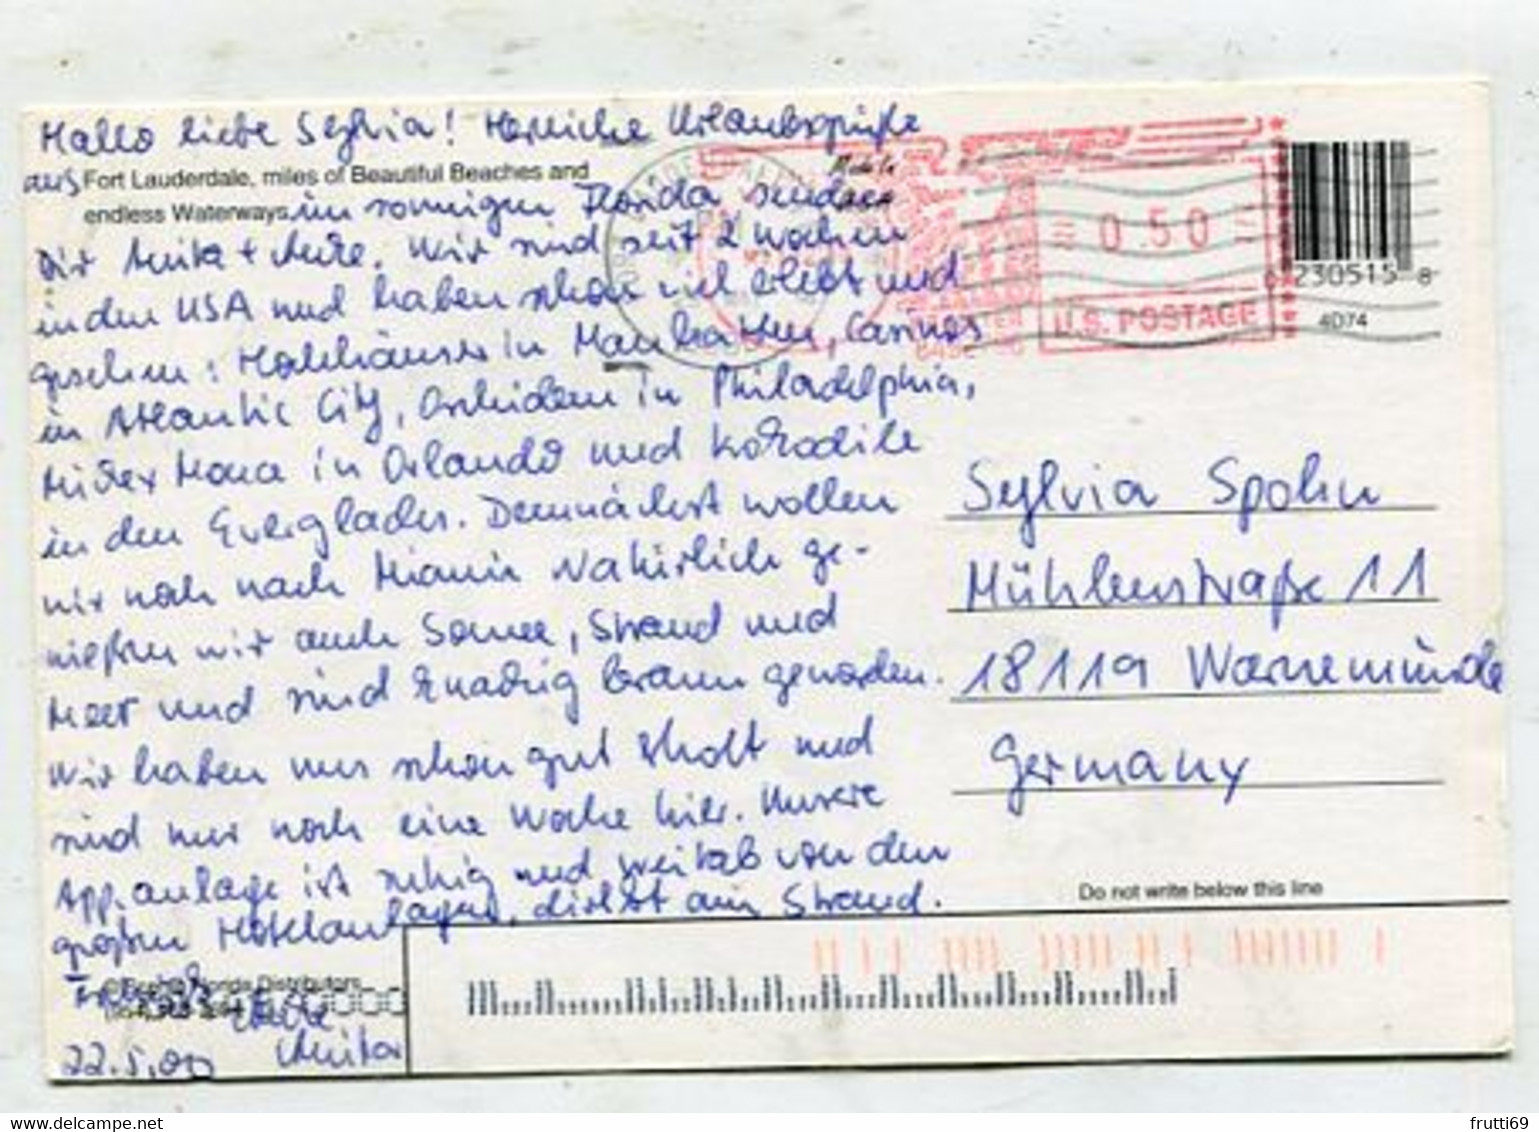 Hallo liebe Sylvia! Herzliche Urlaubsgrüße
aus
Fort Lauderdale, miles of Beautiful Beaches and
endless Waterways.
im sonnigen Florida senden
Dir Anita + Anke. Wir sind seit 2 Wochen
in den USA und haben schon viel erlebt und
gesehen: Hochhäuser in Manhatten, Casinos
in Atlantic City, Orchideen in Philadelphia,
Mickey Mouse in Orlando und Krokodile
in den Everglades. Demnächst wollen
wir noch nach Miami. Natürlich ge-
nießen wir auch Sonne, Strand und
Meer und sind knackig braun geworden.
Wir haben uns schon gut erholt und
sind nur noch eine Woche hier. Unsere
App.anlage ist ruhig und weitab von den
großen Hotelanlagen, direkt am Strand.
Anke
22.5.00 Anita
0.50
U.S. POSTAGE
230515 8
4D74
Sylvia Spohn
Mühlenstraße 11
18119 Warnemünde
Germany
Do not write below this line
www.delcampe.net
frutti69